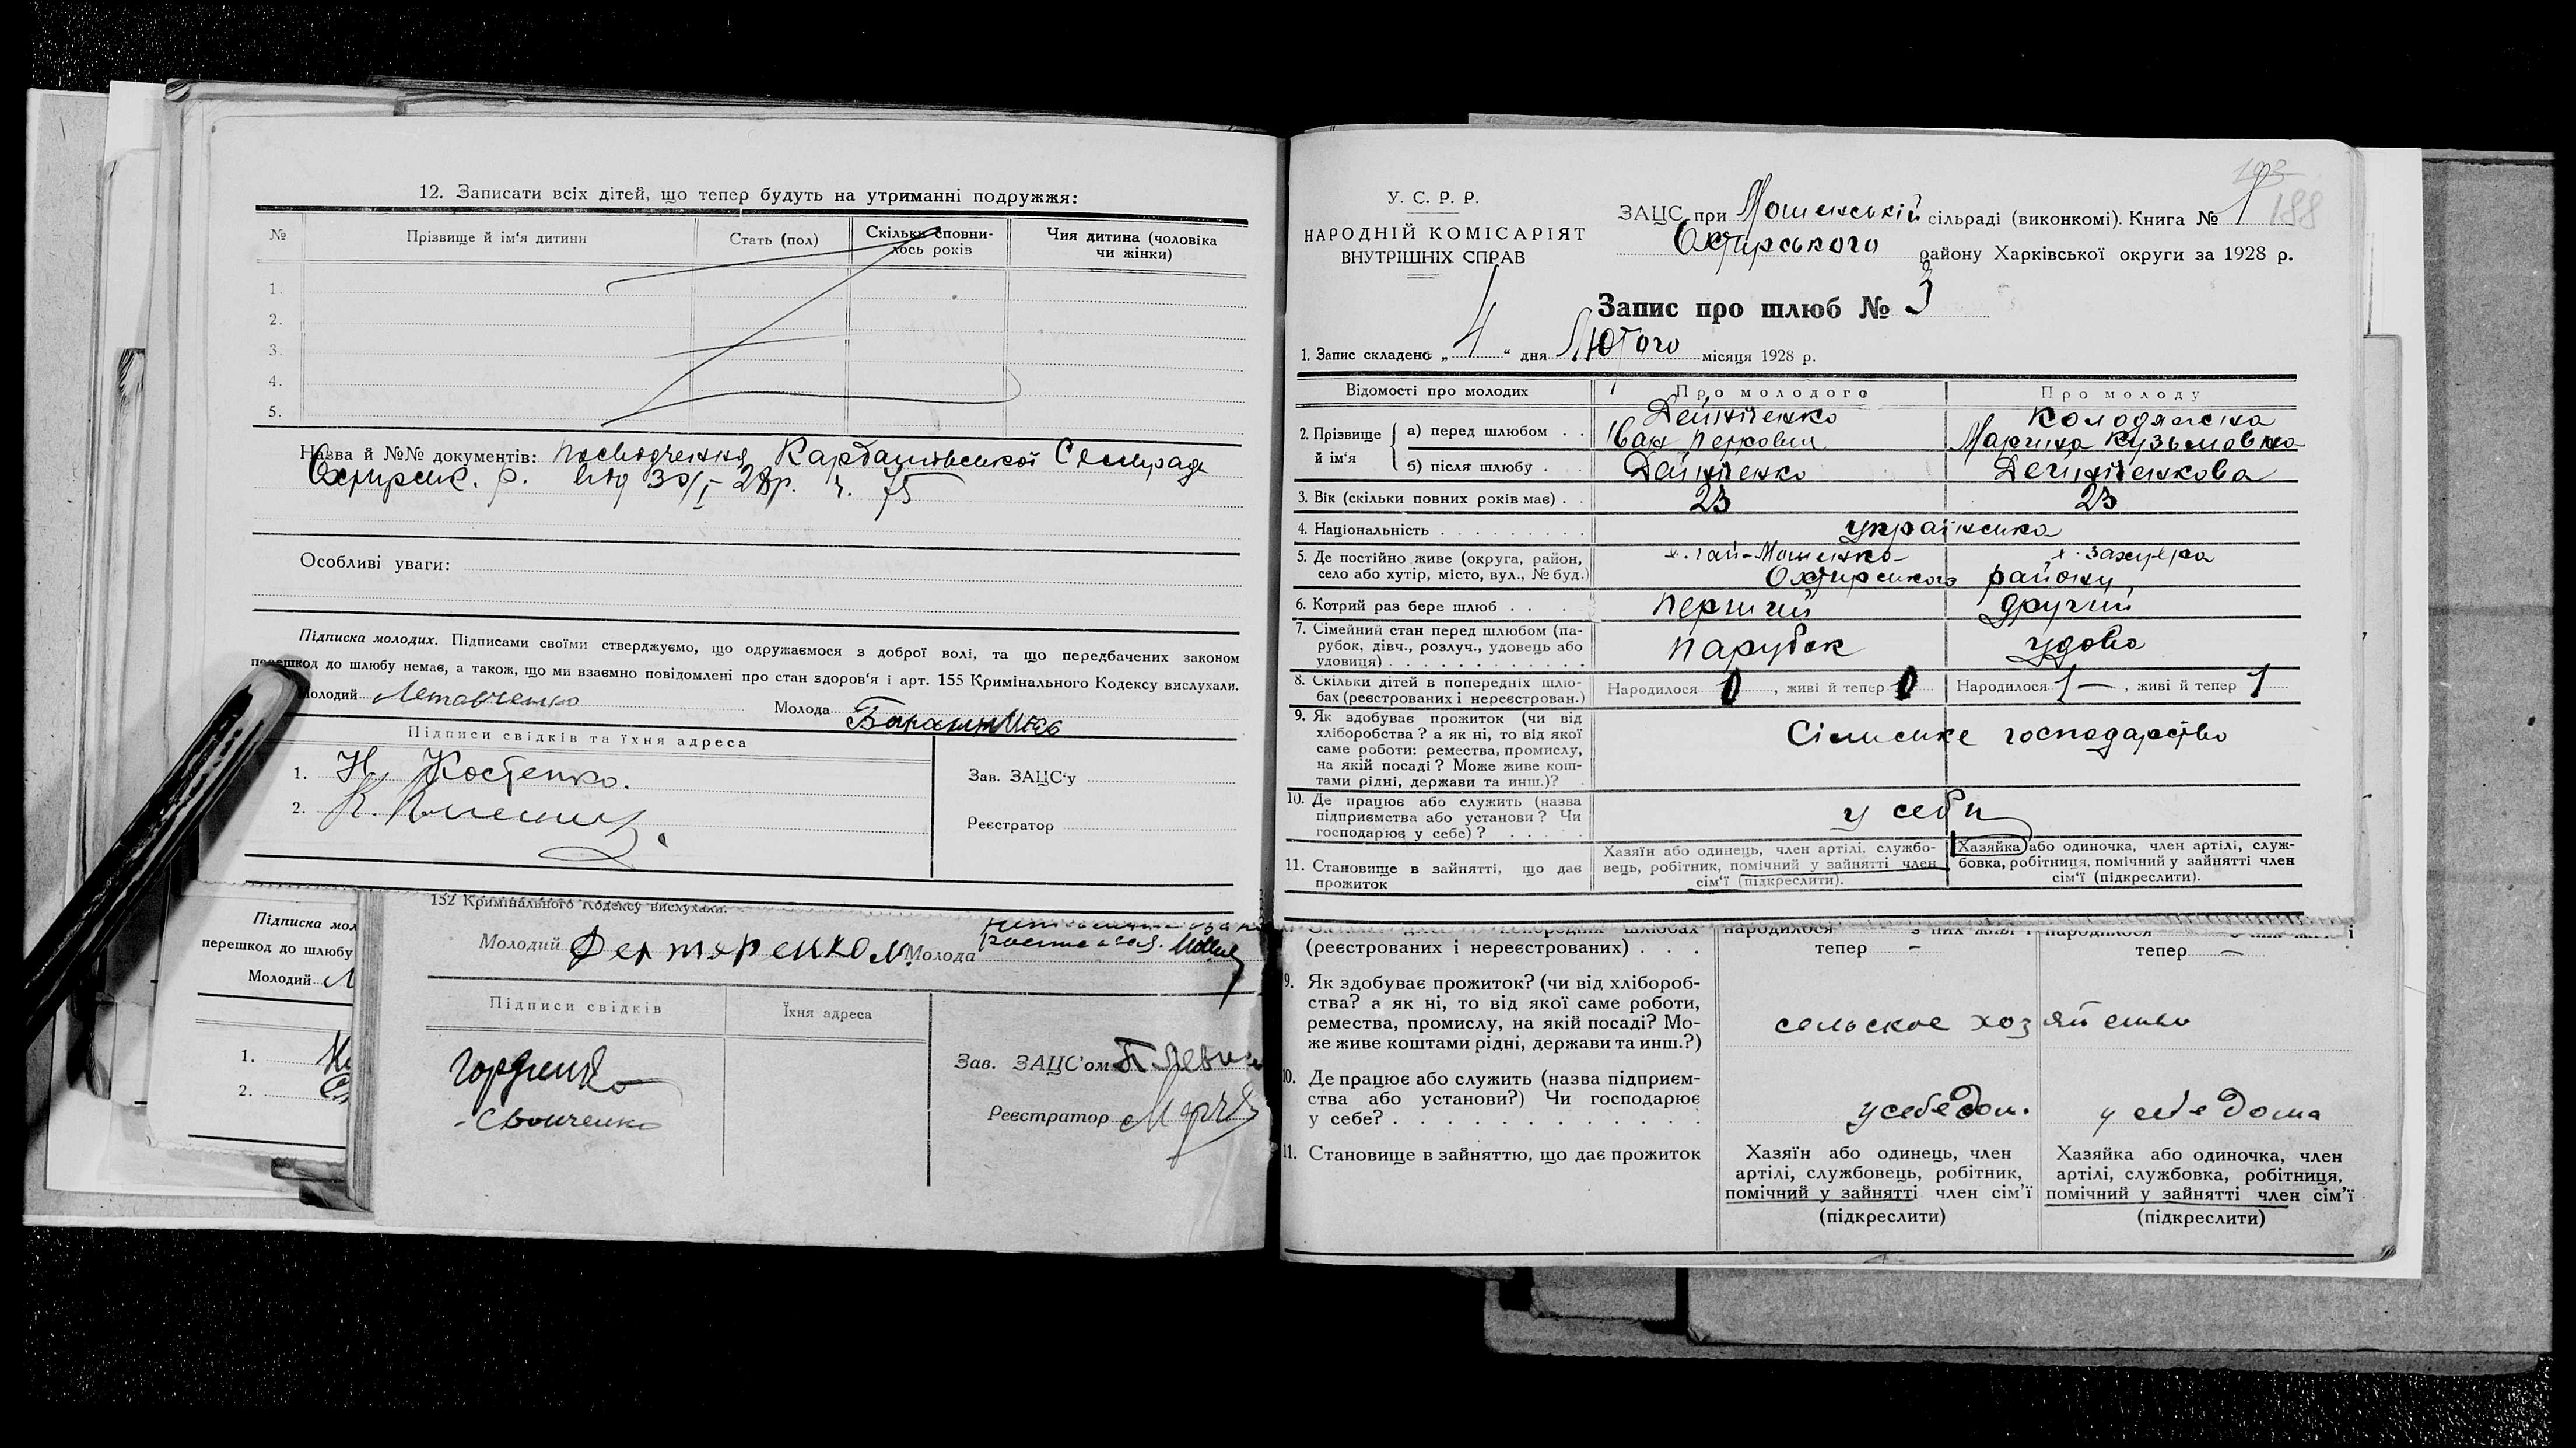 12. Записати всіх дітей, що тепер будуть на утриманні подружжя:
№ Прізвище й ім'я дитини Стать (пол) Скільки сповнилось років Чия дитина (чоловіка чи жінки)
1.
2.
3.
4.
5.
Назва й №№ документів: посвідчення Сільради
Охтирськ. р. від 30/I-28р. ч. 75
Особливі уваги:
Підписка молодих. Підписами своїми стверджуємо, що одружаємося з доброї волі, та що передбачених законом
перешкод до шлюбу немає, а також, що ми взаємно повідомлені про стан здоров'я і арт. 155 Кримінального Кодексу вислухали.
Молодий Молода
Підписи свідків та їхня адреса
1. Н. Костенко.
2. К.
Зав. ЗАЦС'у
Реєстратор
Підписка мол
перешкод до шлюбу
Молодий
1.
2.
152 Кримінального Кодексу вислухали.
Молодий Молода
Підписи свідків Їхня адреса
Гордієнко
Зав. ЗАЦС'ом
Реєстратор
У. С. Р. Р.
НАРОДНІЙ КОМІСАРІЯТ
ВНУТРІШНІХ СПРАВ
193
188
ЗАЦС при Мошенській сільраді (виконкомі). Книга № 1
Охтирського району Харківської округи за 1928 р.
Запис про шлюб № 3
1. Запис складено „4“ дня Лютого місяця 1928 р.
Відомості про молодих Про молодого Про молоду
2. Прізвище й ім'я
а) перед шлюбом . . Дейниченко Колодяжна
Іван Марина Кузьмовна
б) після шлюбу . Дейниченко Дейниченкова
3. Вік (скільки повних років має) . . 23 23
4. Національність українська
5. Де постійно живе (округа, район, село або хутір, місто, вул., № буд.) х. Гай-Мошенка х.
Охтирського району
6. Котрий раз бере шлюб перший другий
7. Сімейний стан перед шлюбом (парубок, дівч., розлуч., удовець або удовиця) парубок удова
8. Скільки дітей в попередніх шлюбах (реєстрованих і нереєстрован.) Народилося 0, живі й тепер 0 Народилося 1 —, живі й тепер 1
9. Як здобуває прожиток (чи від хліборобства? а як ні, то від якої саме роботи: ремества, промислу, на якій посаді? Може живе коштами рідні, держави та инш.)? Сільське господарство
10. Де працює або служить (назва підприємства або установи? Чи господарює у себе)? у себе
11. Становище в зайнятті, що дає прожиток
Хазяїн або одинець, член артілі, службовець, робітник, помічний у зайнятті член сім'ї (підкреслити).
Хазяйка або одиночка, член артілі, службовка, робітниця, помічний у зайнятті член сім'ї (підкреслити).
(реєстрованих і нереєстрованих) . . . тепер – тепер —
9. Як здобуває прожиток? (чи від хліборобства? а як ні, то від якої саме роботи, ремества, промислу, на якій посаді? Може живе коштами рідні, держави та инш.?) сельское хозяйство
10. Де працює або служить (назва підприємства або установи?) Чи господарює у себе? у себе дом. у себе дома
11. Становище в зайняттю, що дає прожиток
Хазяїн або одинець, член артілі, службовець, робітник, помічний у зайнятті член сім'ї (підкреслити)
Хазяйка або одиночка, член артілі, службовка, робітниця, помічний у зайнятті член сім'ї (підкреслити)